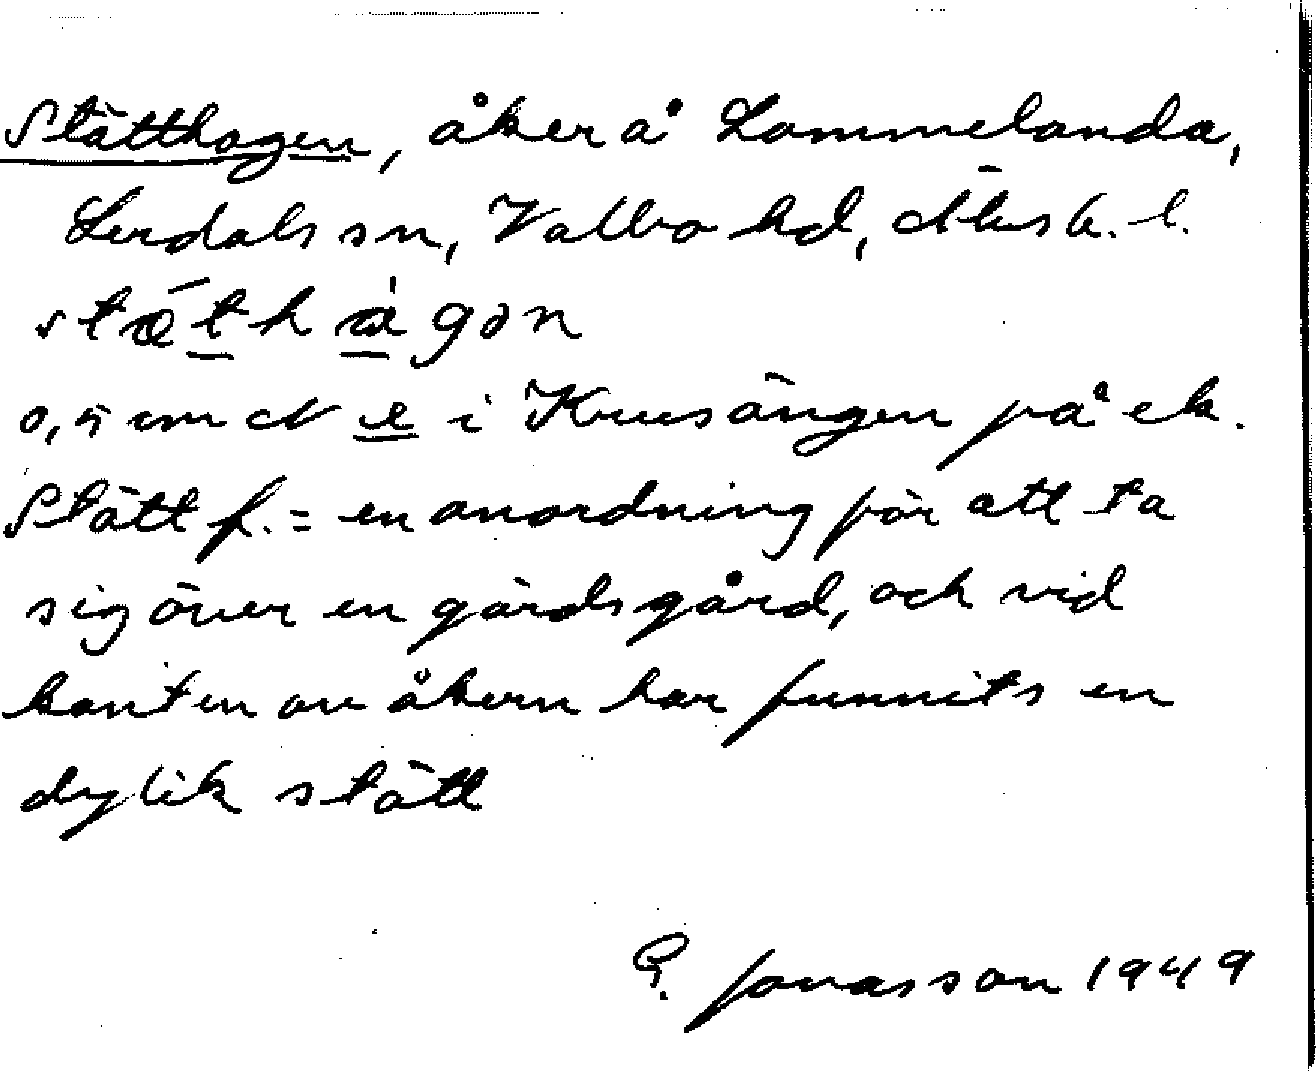 Stätthagen, åker å Lommelanda,
Lerdals sn, Valbo hd, Älvsb. l.
stǽthàgən
0,5 cm N e i Krusängen på ek.
Stätt f. = en anordning för att ta
sig över en gärdsgård, och vid
kanten av åkern har funnits en
dylik stätt
G. Jonasson 1949